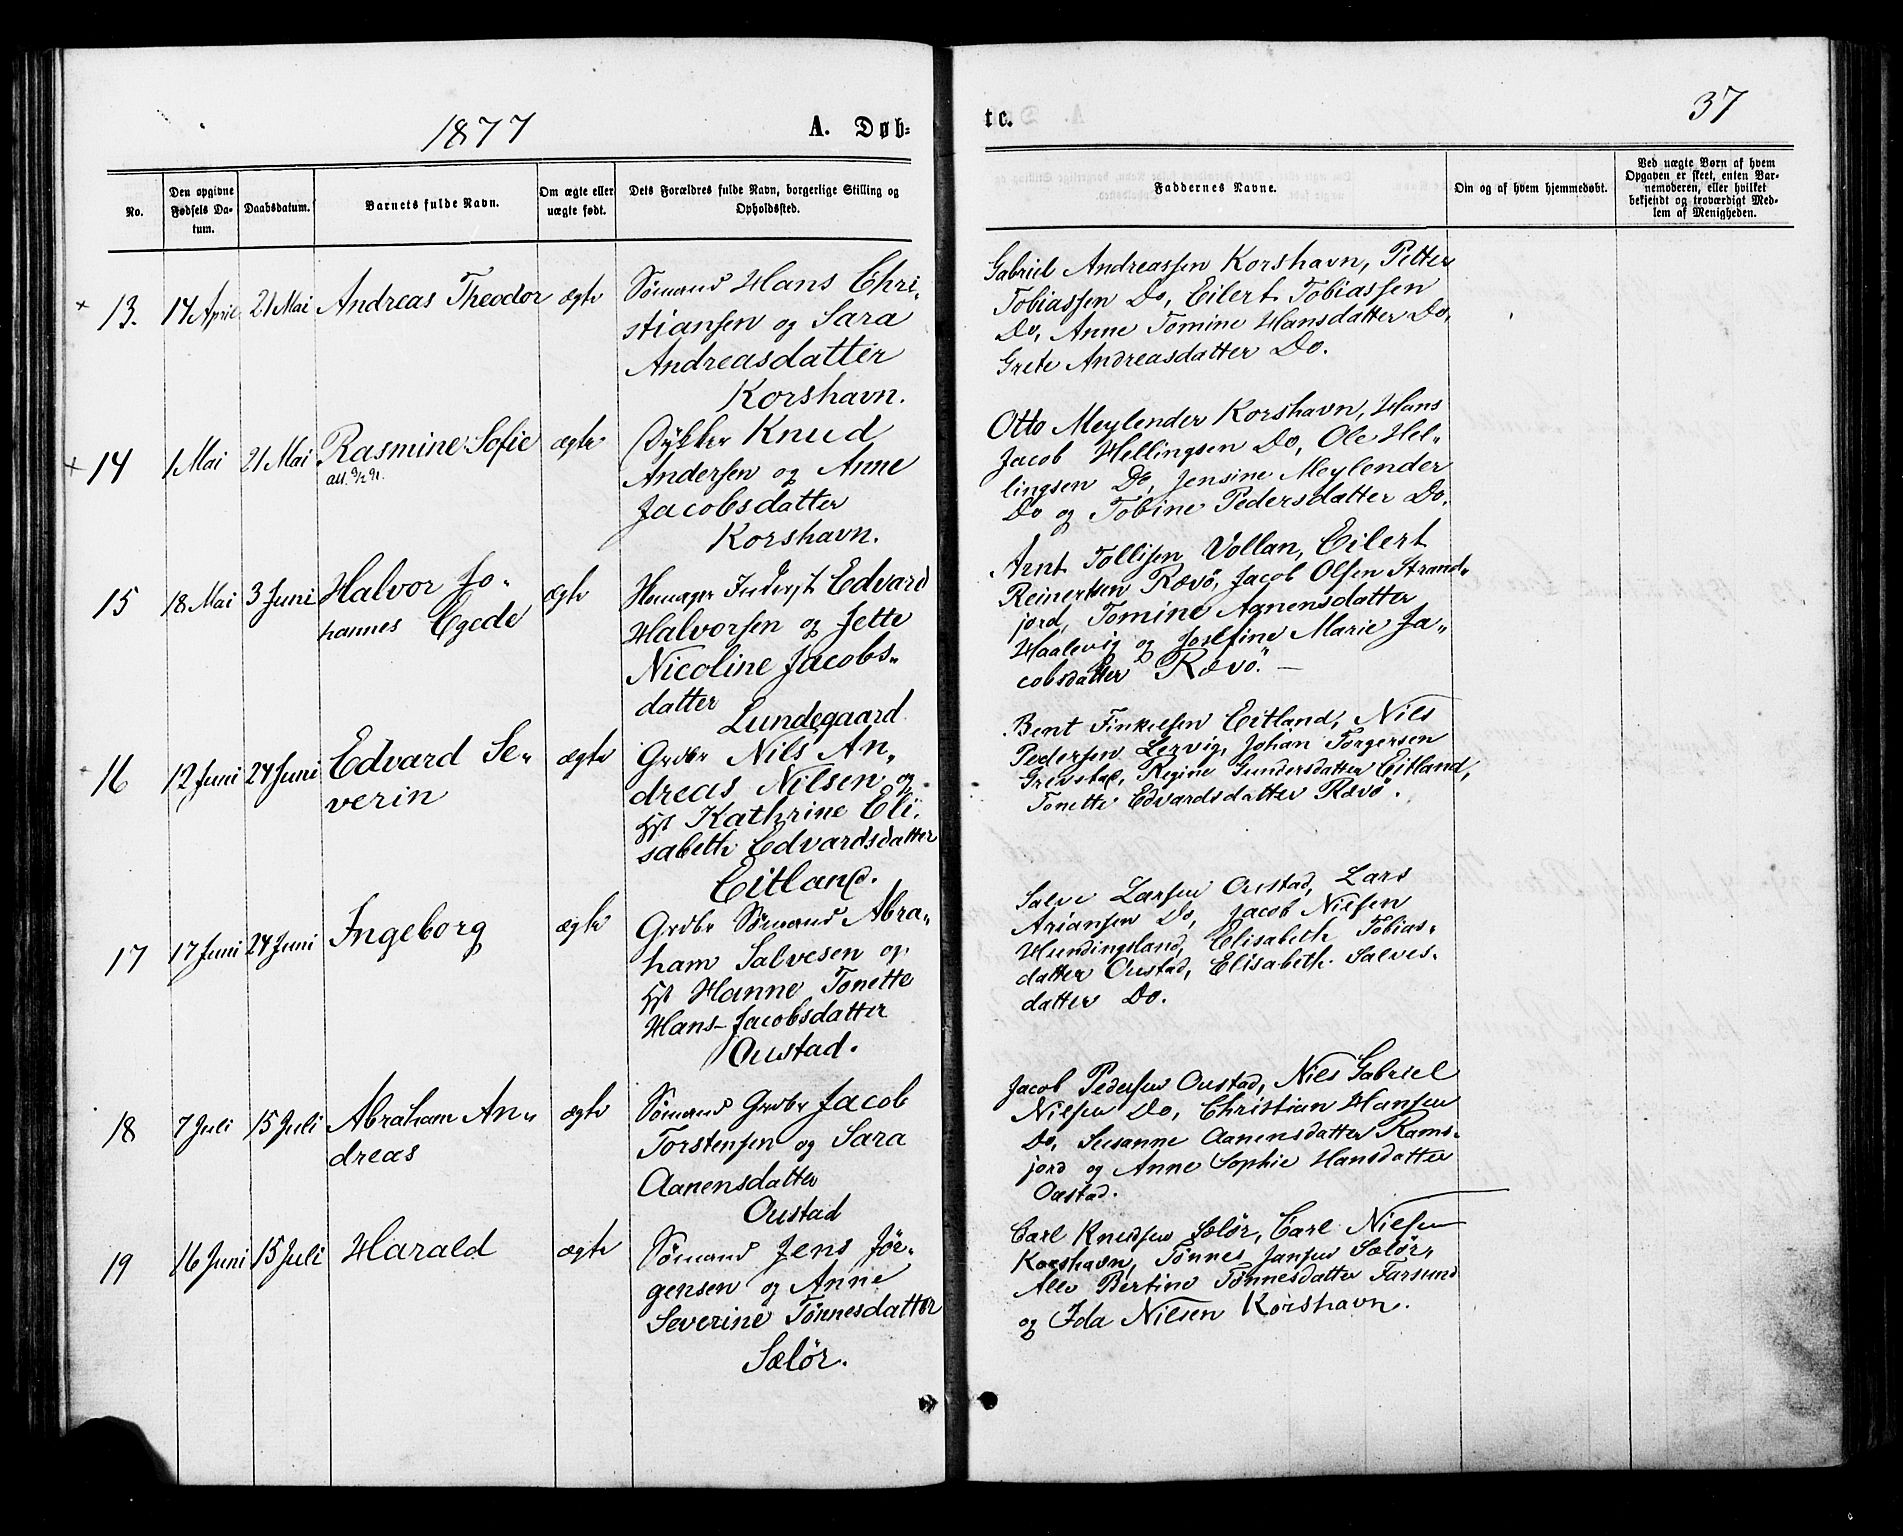 1877
A. Døb-
No.
Den opgivne Fødsels Da-tum.
Daabsdatum.
Barnets fulde Navn.
Om ægte eller uægte født.
Dets Forældres fulde Navn, borgerlige Stilling og Opholdssted.
× 13. 14 April 21 Mai Andreas Theodor ægte
Sömand Hans Chri-
stiansen og Sara
Andreasdatter
Korshavn.
× 14 1 Mai 21 Mai Rasmine Sofie ægte
att. 9/2 91.
Dykker Knud
Andersen og Anne
Jacobsdatter
Korshavn.
15 18 Mai 3 Juni Halvor Jo-
hannes Egede ægte
Edvard
Halvorsen og Jette
Nicoline Jacobs-
datter
Lundegaard
16 12 Juni 24 Juni Edvard Se-
verin ægte
Grdbr Nils An-
dreas Nilsen og
Hst Kathrine Eli-
sabeth Edvardsdatter
Eitland.
17 17 Juni 24 Juni Ingeborg ægte
Grdbr Sömand Abra-
ham Salvesen og
Hst Hanne Tonette
Hans-Jacobsdatter
Oustad.
18 7 Juli 15 Juli Abraham An-
dreas ægte
Sömand Grdbr Jacob
Torstensen og Sara
Aanensdatter
Oustad
19 16 Juni 15 Juli Harald ægte
Sömand Jens Jör-
gensen og Anne
Severine Tönnesdatter
Sælör.
te.
37
Faddernes Navne.
Om og af hvem hjemmedøbt.
Ved uægte Børn af hvem
Opgaven er skeet, enten Bar-
nemoderen, eller hvilket
bekjendt og troværdigt Med-
lem af Menigheden.
Gabriel Andreassen Korshavn, Petter
Tobiassen Do, Eilert Tobiassen
Do, Anne Tomine Hansdatter Do,
Grete Andreasdatter Do.
Otto Meylender Korshavn, Hans
Jacob Hellingsen Do, Ole Hel-
lingsen Do, Jensine Meylender
Do og Tobine Pedersdatter Do.
Arnt Tollisen Vollan, Eilert
Reinertsen Rævö, Jacob Olsen Strand-
jord, Tomine Aanensdatter
Haalevig og Josefine Marie Ja-
cobsdatter Rævö. —
Bent Finkelsen Eitland, Nils
Pedersen Lervig, Johan Torgersen
Grevstad, Regine Gundersdatter Eitland,
Tonette Edvardsdatter Rævö.
Salve Larsen Oustad, Lars
Ariansen Do, Jacob Nilsen
Hundingsland, Elisabeth Tobias-
datter Oustad, Elisabeth Salves-
datter Do.
Jacob Pedersen Oustad, Nils Gabriel
Nilsen Do, Christian Hansen
Do, Susanne Aanensdatter Rams-
jord og Anne Sophie Hansdatter
Oustad.
Carl Knudsen Sælör, Carl Nilsen
Korshavn, Tönnes Jansen Sælör,
Alle Bertine Tönnesdatter Farsund
og Ida Nilsen Korshavn.